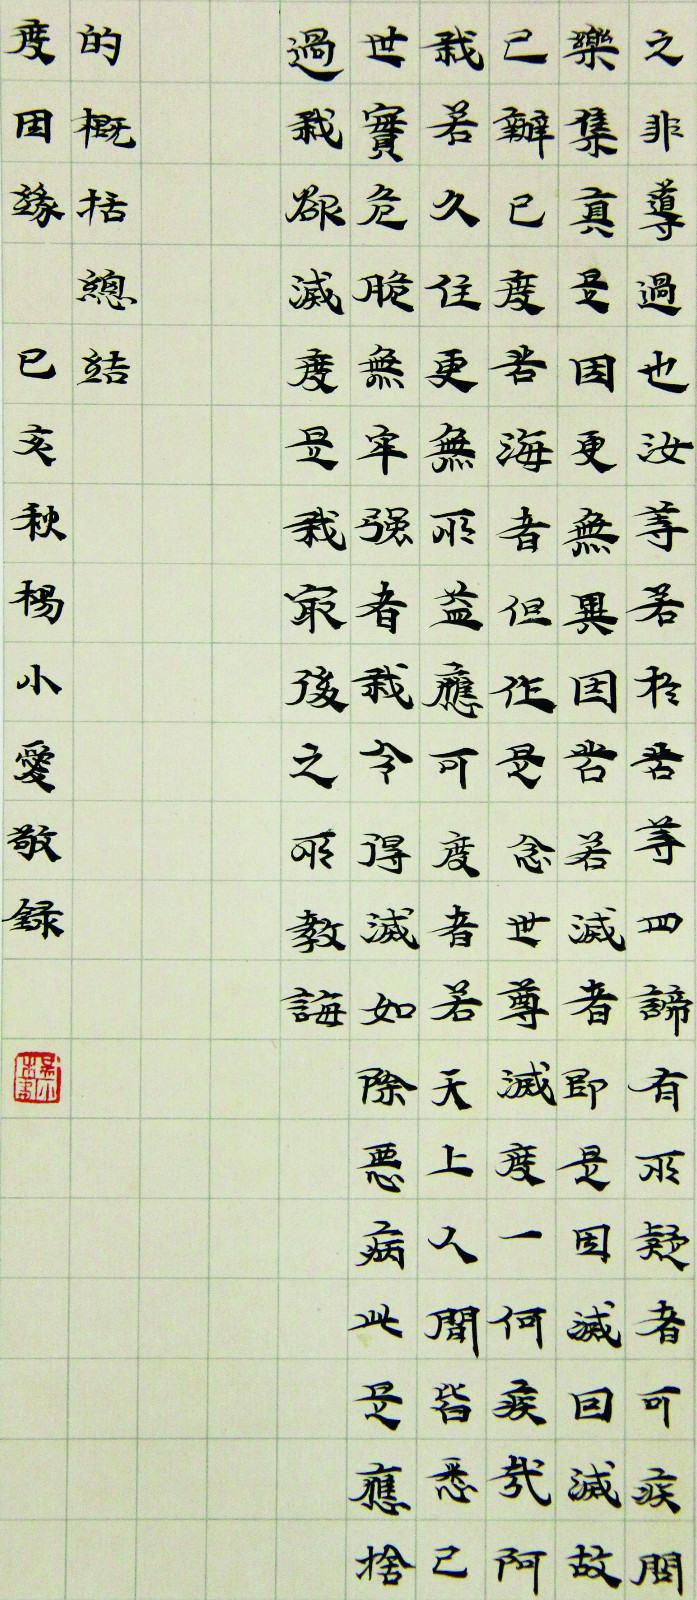 之非導過也汝等若於苦等四諦有所疑者可疾問
樂集真是因更無異因苦若滅者即是因滅因滅故
已辦已度苦海者但作是念世尊滅度一何疾哉阿
我若久住更無所益應可度者若天上人間皆悉已
世實危脆無牢强者我今得滅如除惡病此是應捨
過我欲滅度是我最後之所教誨
的概括總結
度因緣 已亥秋楊小愛敬録